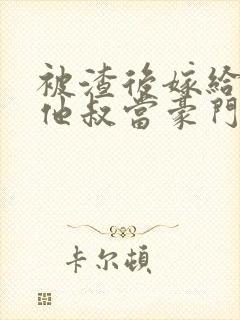 被渣後嫁給
他叔當豪門
卡尔頓